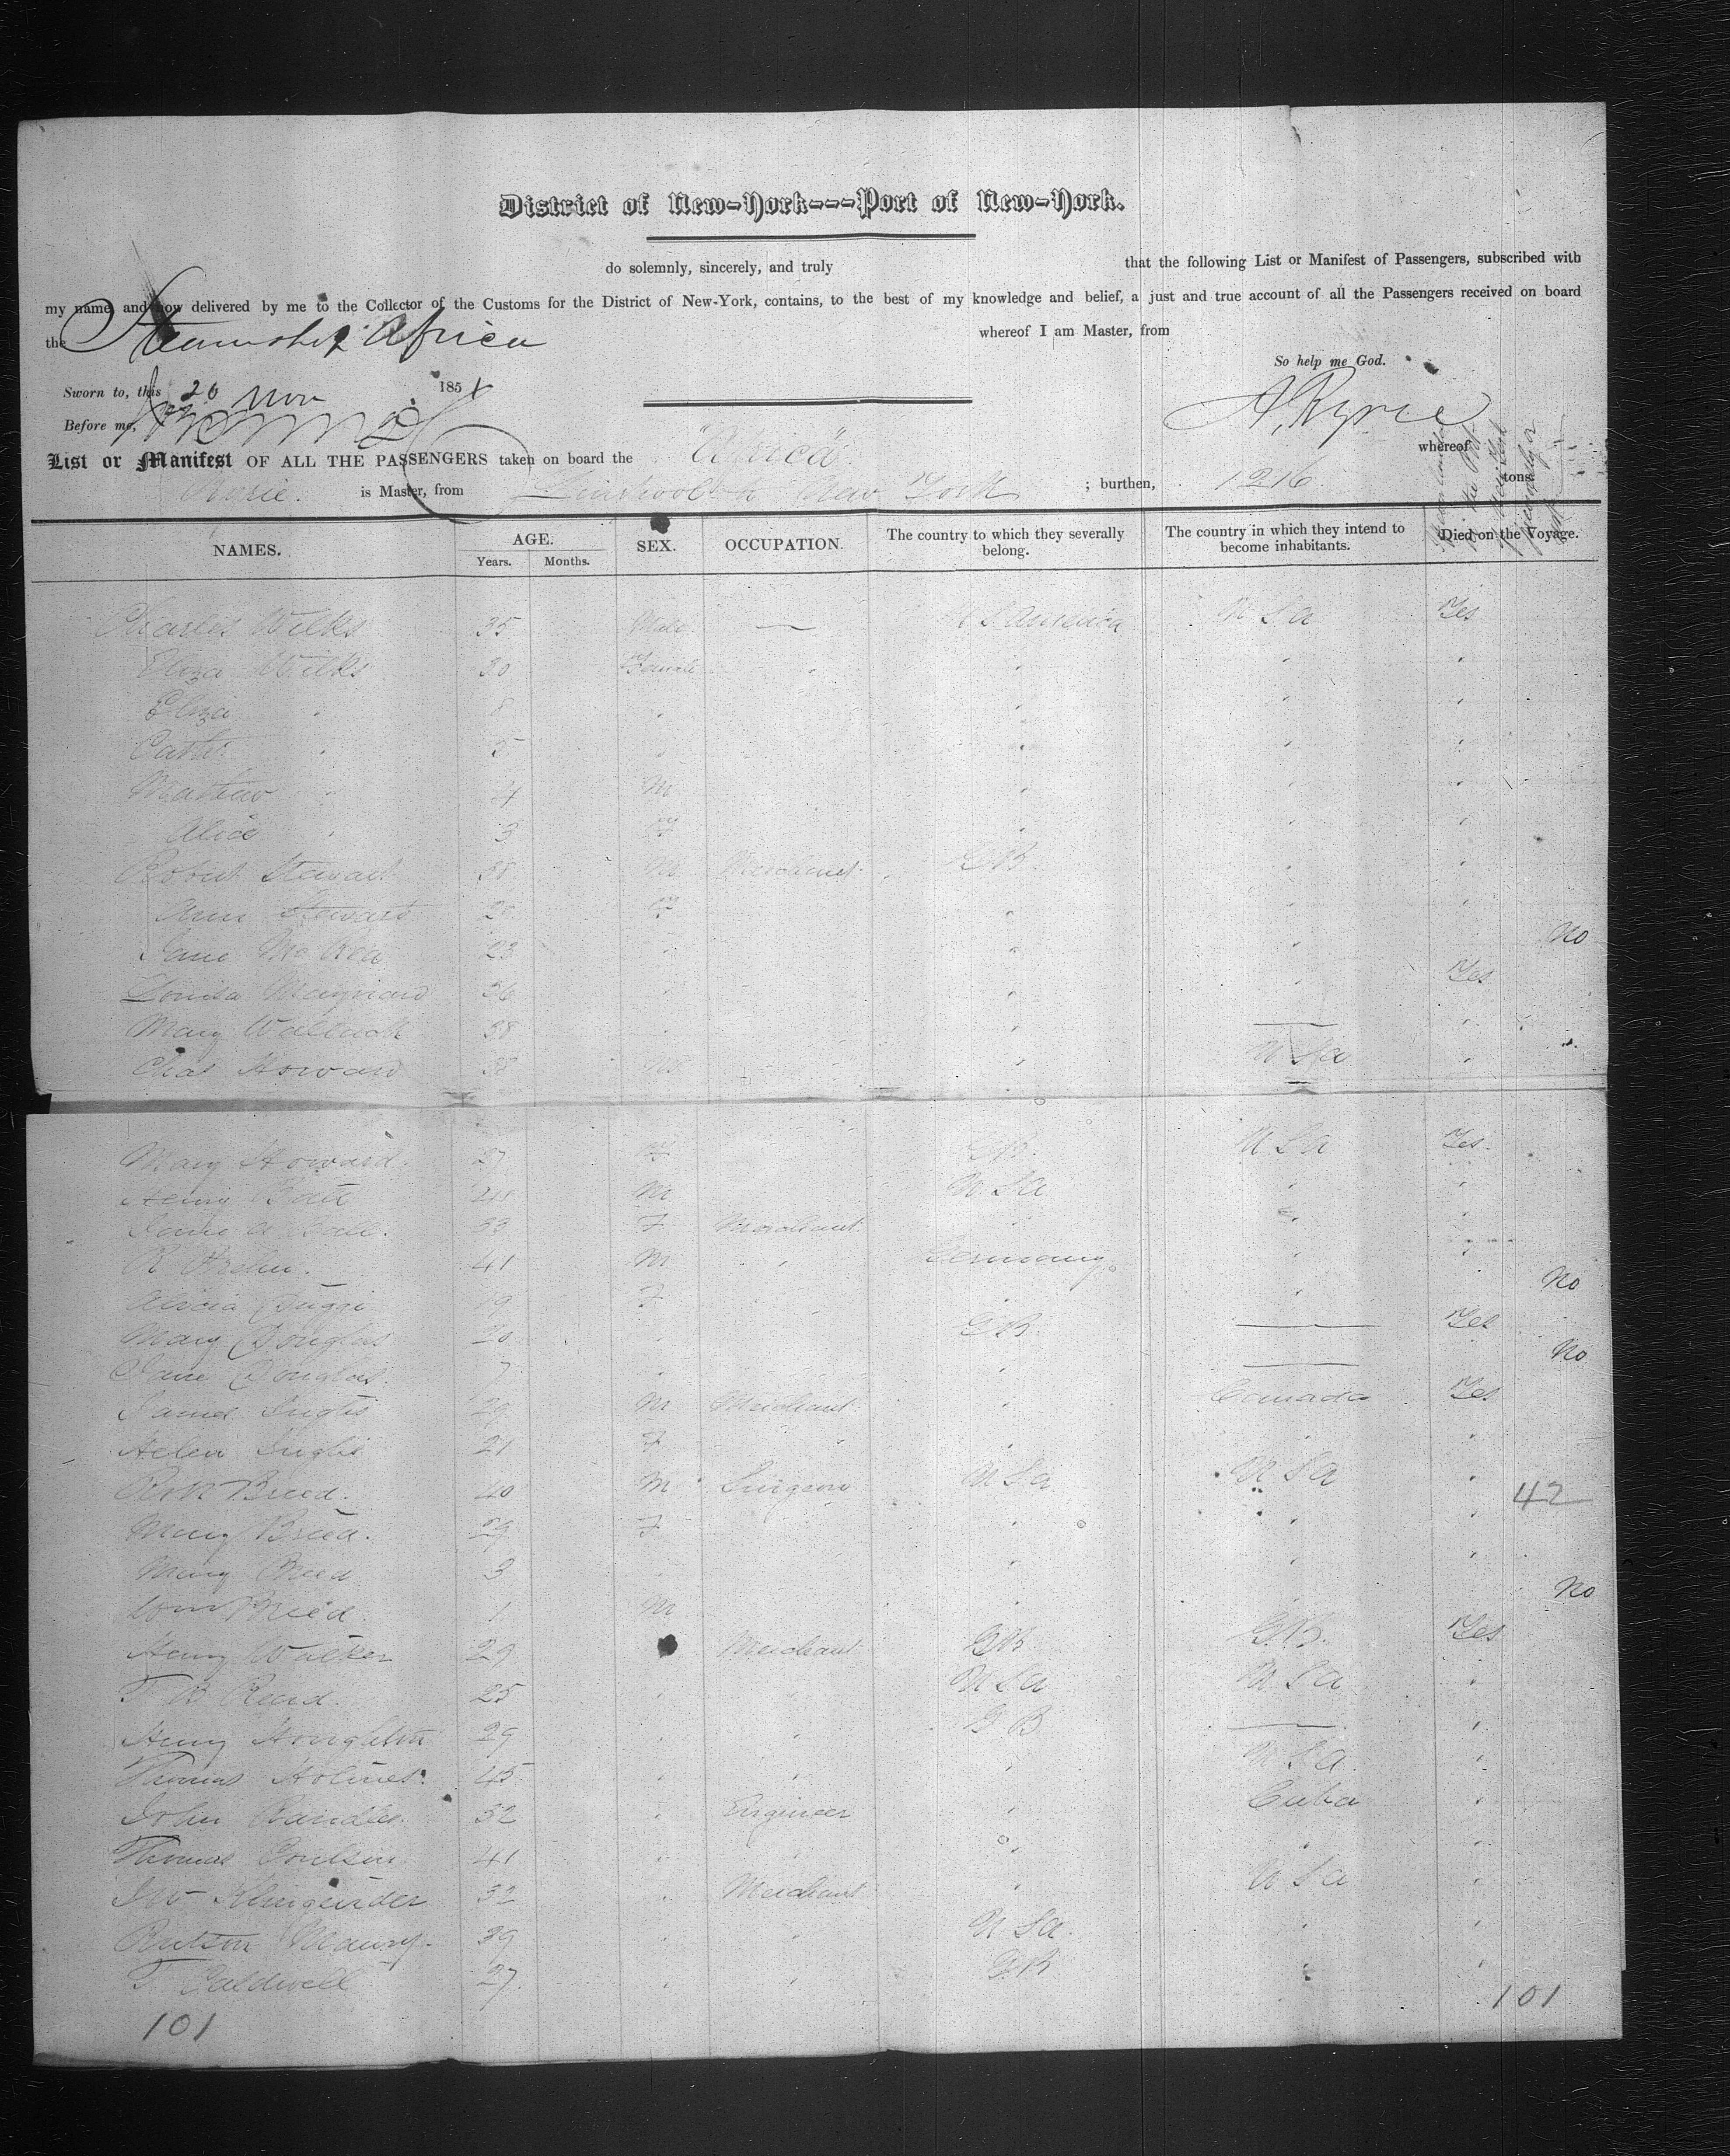 District of New-York---Port of New-York.
do solemnly, sincerely, and truly that the following List or Manifest of Passengers, subscribed with
my name, and now delivered by me to the Collector of the Customs for the District of New-York, contains, to the best of my knowledge and belief, a just and true account of all the Passengers received on board
the Steamship Africa whereof I am Master, from
So help me God.
Sworn to, this 20 Nov 1851
A. Ryrie
Before me,
List or Manifest OF ALL THE PASSENGERS taken on board the "Africa" whereof
Ryrie. is Master, from Liverpool to New York ; burthen, 1216 tons
NAMES. AGE. Years. Months. SEX. OCCUPATION. The country to which they severally belong. The country in which they intend to become inhabitants. Died on the Voyage.
Charles Wilks 35 Male — U S America U S A Yes
Eliza Wilks 30 Female " " " "
Eliza " 8 " " " "
Cath " 5 " " " "
Mathew " 4 M " " "
Alice " 3 F " " "
Robert Stewart 38 M Merchant G B " "
Ann Stewart 26 F " " "
Jane 23 " " " No
Louisa Maynard 36 " " " Yes
Mary Wallack 38 " " — "
Chas Howard 38 M " U S A "
Mary Howard 27 F G B U S A Yes
Henry 41 M U S A " "
33 F Merchant " " "
R 41 M " Germany " "
Alicia 19 F " " No
Mary Douglas 20 " G B — Yes
Jane Douglas 7 " " — No
James Inglis 29 M Merchant " Canada Yes
Helen Inglis 21 F " " " "
Breed 40 M Surgeon U S A U S A " 42
Mary Breed 29 F " " "
Mary Breed 3 " " " "
Wm Breed 1 M " No
Henry Walker 29 Merchant G B G.B. Yes
T B Read 25 " " U S A U S A "
Henry Houghton 29 " " G B — "
Thomas Holmes 45 " " " U S A "
John 32 " Engineer " Cuba "
Thomas Coulson 41 " " " " "
Klingender 32 " Merchant " U S A "
Rutson Maury 39 " " U S A " "
T Caldwell 27 " " G B " "
101 101